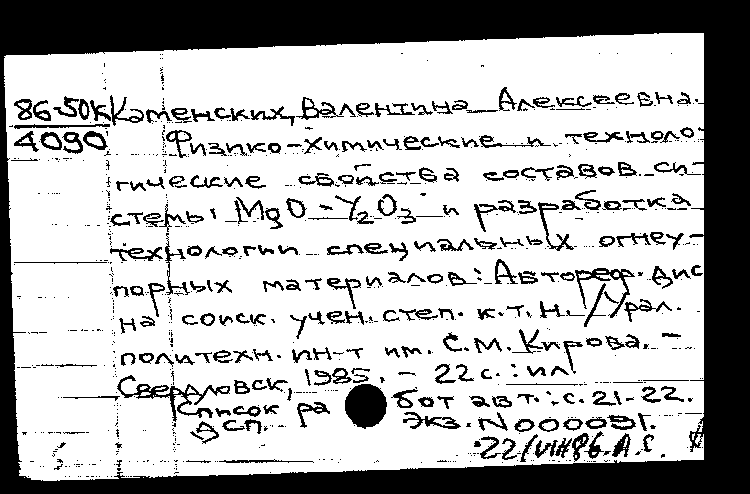 86-50к Каменских, Валентина Алексеевна.
4090 Физико-химические и техноло-
гические свойства составов си-
стемы MgO-Y₂O₃ и разработка
технологии специальных огнеу-
порных материалов: Автореф. дис
на соиск. учен. степ. к.т.н. / Урал.
политехн. ин-т им. С.М. Кирова. -
Свердловск, 1985. - 22 с.: ил
Список работ авт.: с. 21-22.
ДСП. Экз. N000091.
22/VIII 86. А.С.